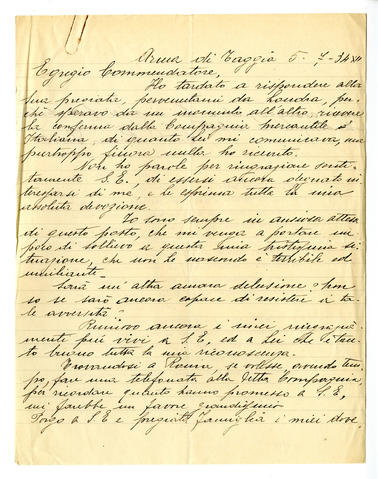 Arma di Taggia 5-7-34 XII
Egregio Commendatore,
Ho tardato a rispondere alla
sua pregiata, pervenutami da Londra, per-
chè speravo da un momento all'altro, ricevere
la conferma dalla Compagnia mercantile
Italiana, di quanto Lei mi comunicava, ma
purtroppo finora nulla ho ricevuto.
Non ho parole per ringraziare
S. E. di essersi ancora degnato in-
teressarsi di me, e le esprima tutta la mia
assoluta devozione.
Io sono sempre in ansiosa attesa
di questo posto, che mi venga a portare un
poco di sollievo a questa mia si-
tuazione, che non le nascondo è terribile ed
umiliante.
Sarà un'altra amara delusione? Non
so se sarò ancora capace di resistere a ta-
le avversità?
Rinnovo ancora i miei ringrazia-
menti più vivi a S. E, ed a Lei che è tan-
to buono tutta la mia riconoscenza.
Trovandosi a Roma, se volesse avendo tem-
po, fare una telefonata alla Ditta Compagnia,
per ricordare quanto hanno promesso a S. E,
mi farebbe un favore grandissimo
Porgo a S. E e pregiat. famiglia i miei dove-